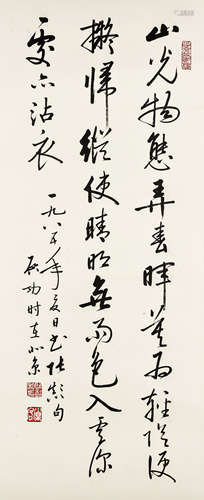 山光物態弄春暉莫為輕陰便
擬歸縱使晴明無雨色入雲深
處亦沾衣
一九八年夏日書張顛句
启功时在北京